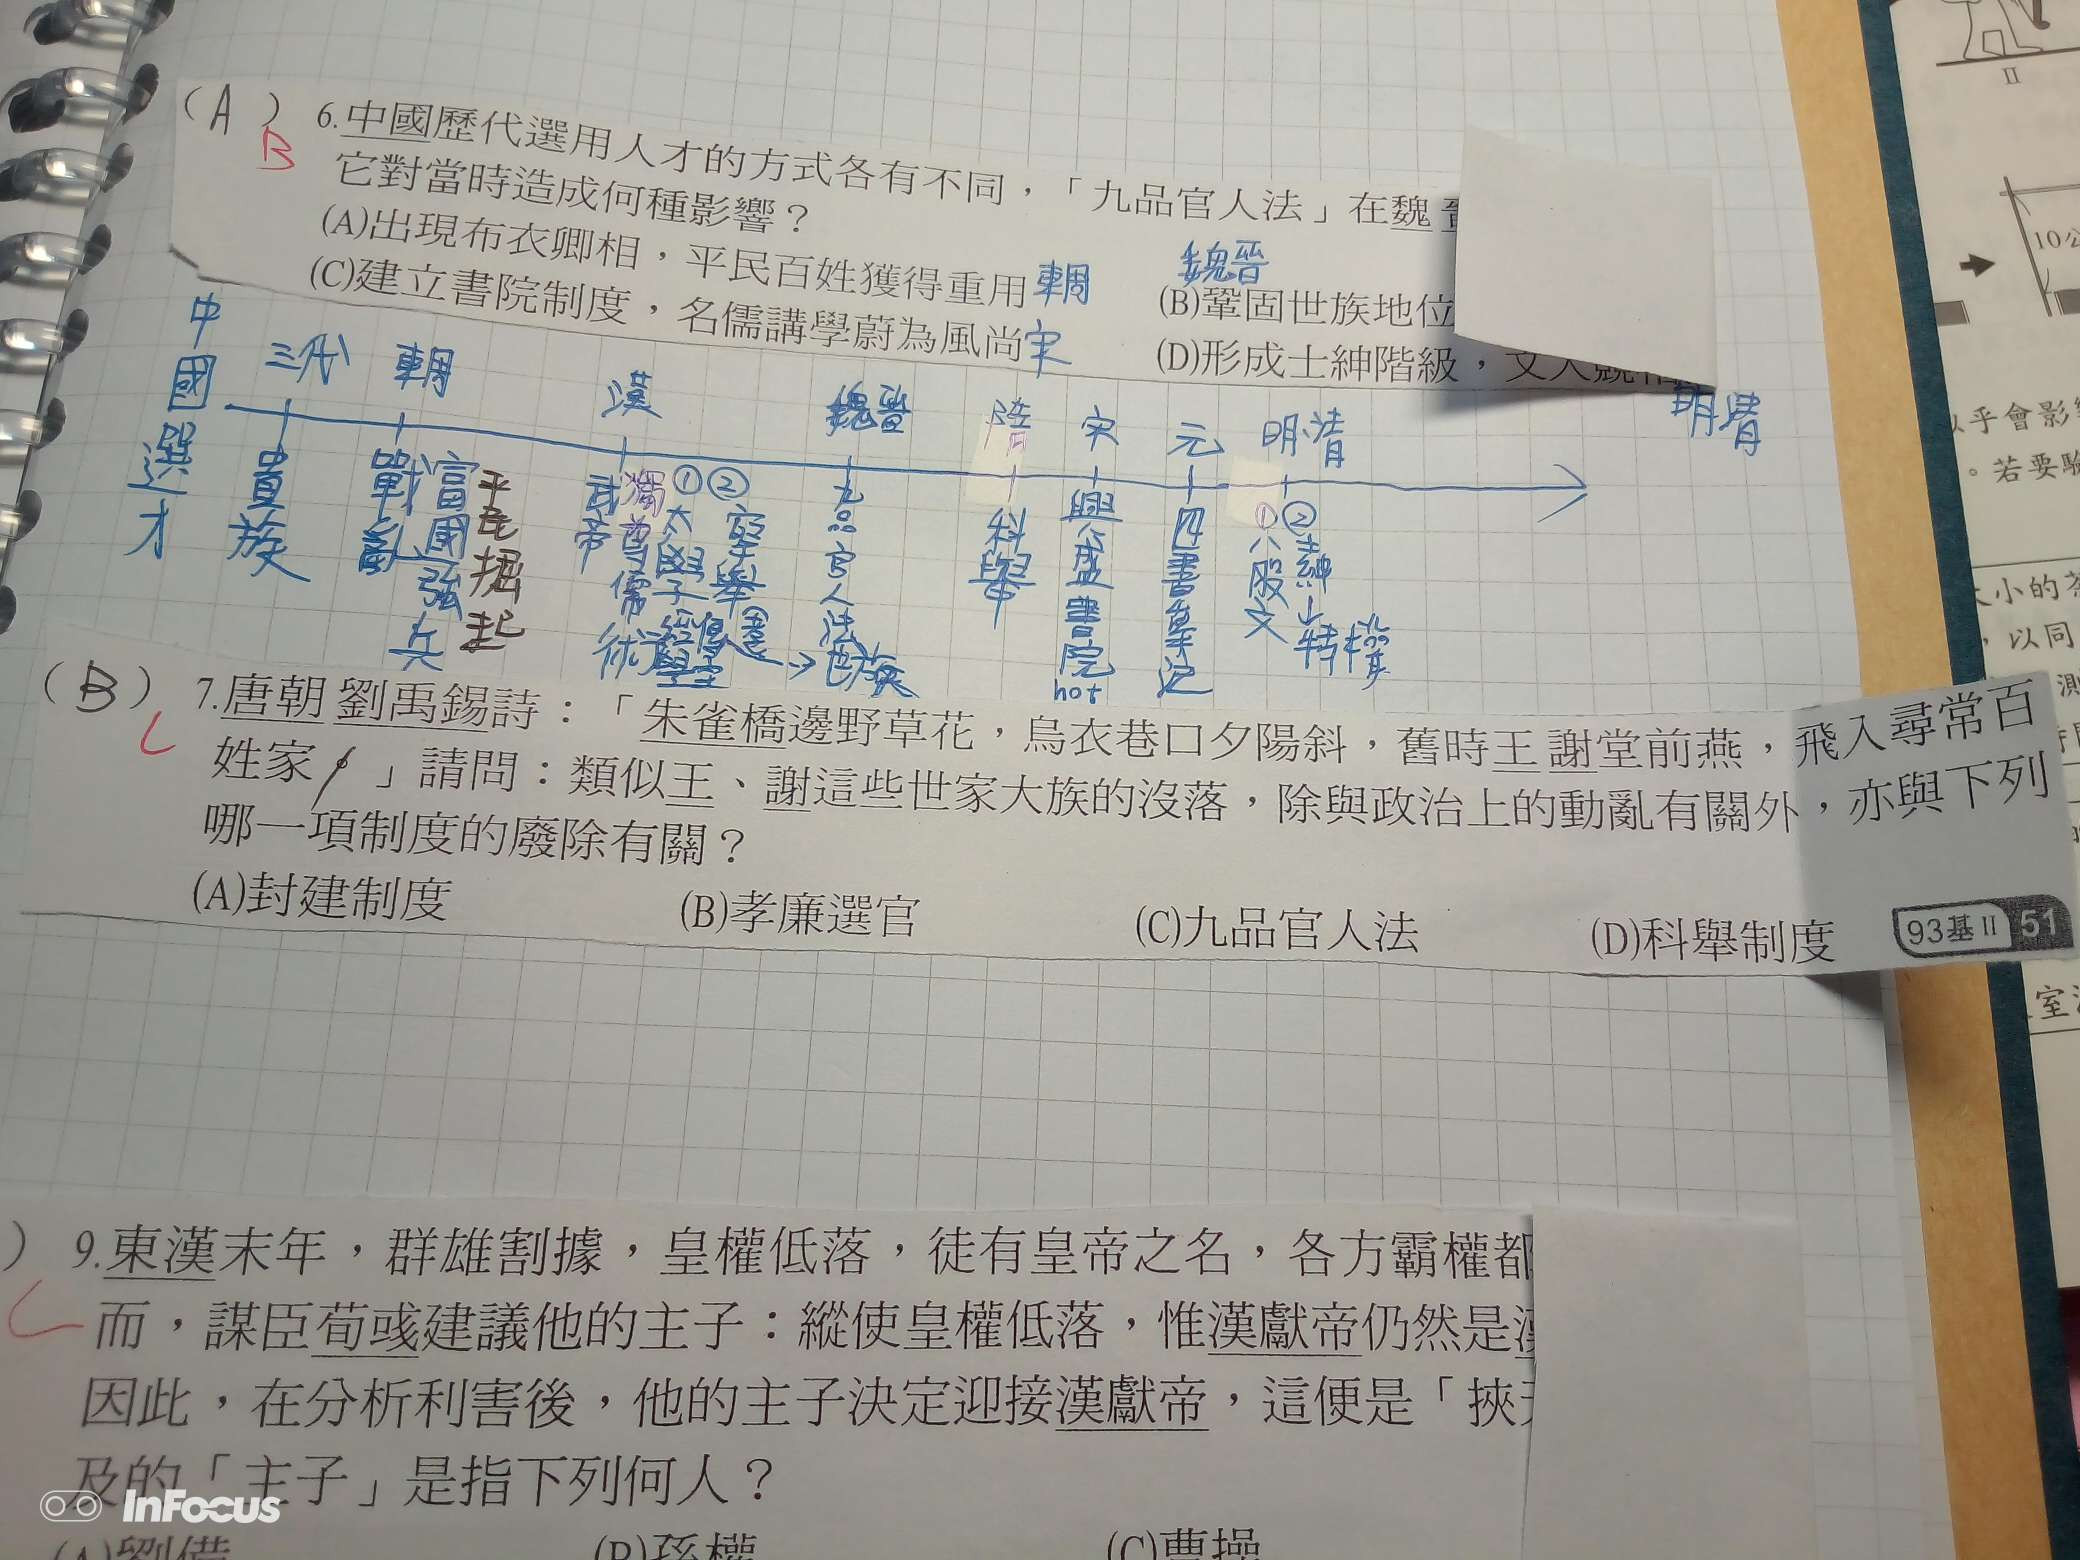 (A) 6.中國歷代選用人才的方式各有不同，「九品官人法」在魏
B
它對當時造成何種影響？
(A)出現布衣卿相，平民百姓獲得重用 東周
魏晉
(B)鞏固世族地位
(C)建立書院制度，名儒講學蔚為風尚 宋
(D)形成士紳階級，文人競相
明清
中國選才
三代 東周 漢 魏晉 隋 宋 元 明清
貴族
戰亂
富國強兵
平民掘起
武帝
獨尊儒術
①太學
②察舉
九品官人法
→世族
科舉
興盛書院
hot
四書集注
①八股文
②士紳
↓
特權
(B) 7.唐朝 劉禹錫詩：「朱雀橋邊野草花，烏衣巷口夕陽斜，舊時王 謝堂前燕，飛入尋常百
C
姓家。」請問：類似王、謝這些世家大族的沒落，除與政治上的動亂有關外，亦與下列
哪一項制度的廢除有關？
(A)封建制度 (B)孝廉選官 (C)九品官人法 (D)科舉制度
93基II 51
) 9.東漢末年，群雄割據，皇權低落，徒有皇帝之名，各方霸權都
C
而，謀臣荀彧建議他的主子：縱使皇權低落，惟漢獻帝仍然是
因此，在分析利害後，他的主子決定迎接漢獻帝，這便是「挾
及的「主子」是指下列何人？
(A)劉備 (B)孫權 (C)曹操
InFocus
II
10公
以乎會影
。若要驗
大小的
，以同
測
室